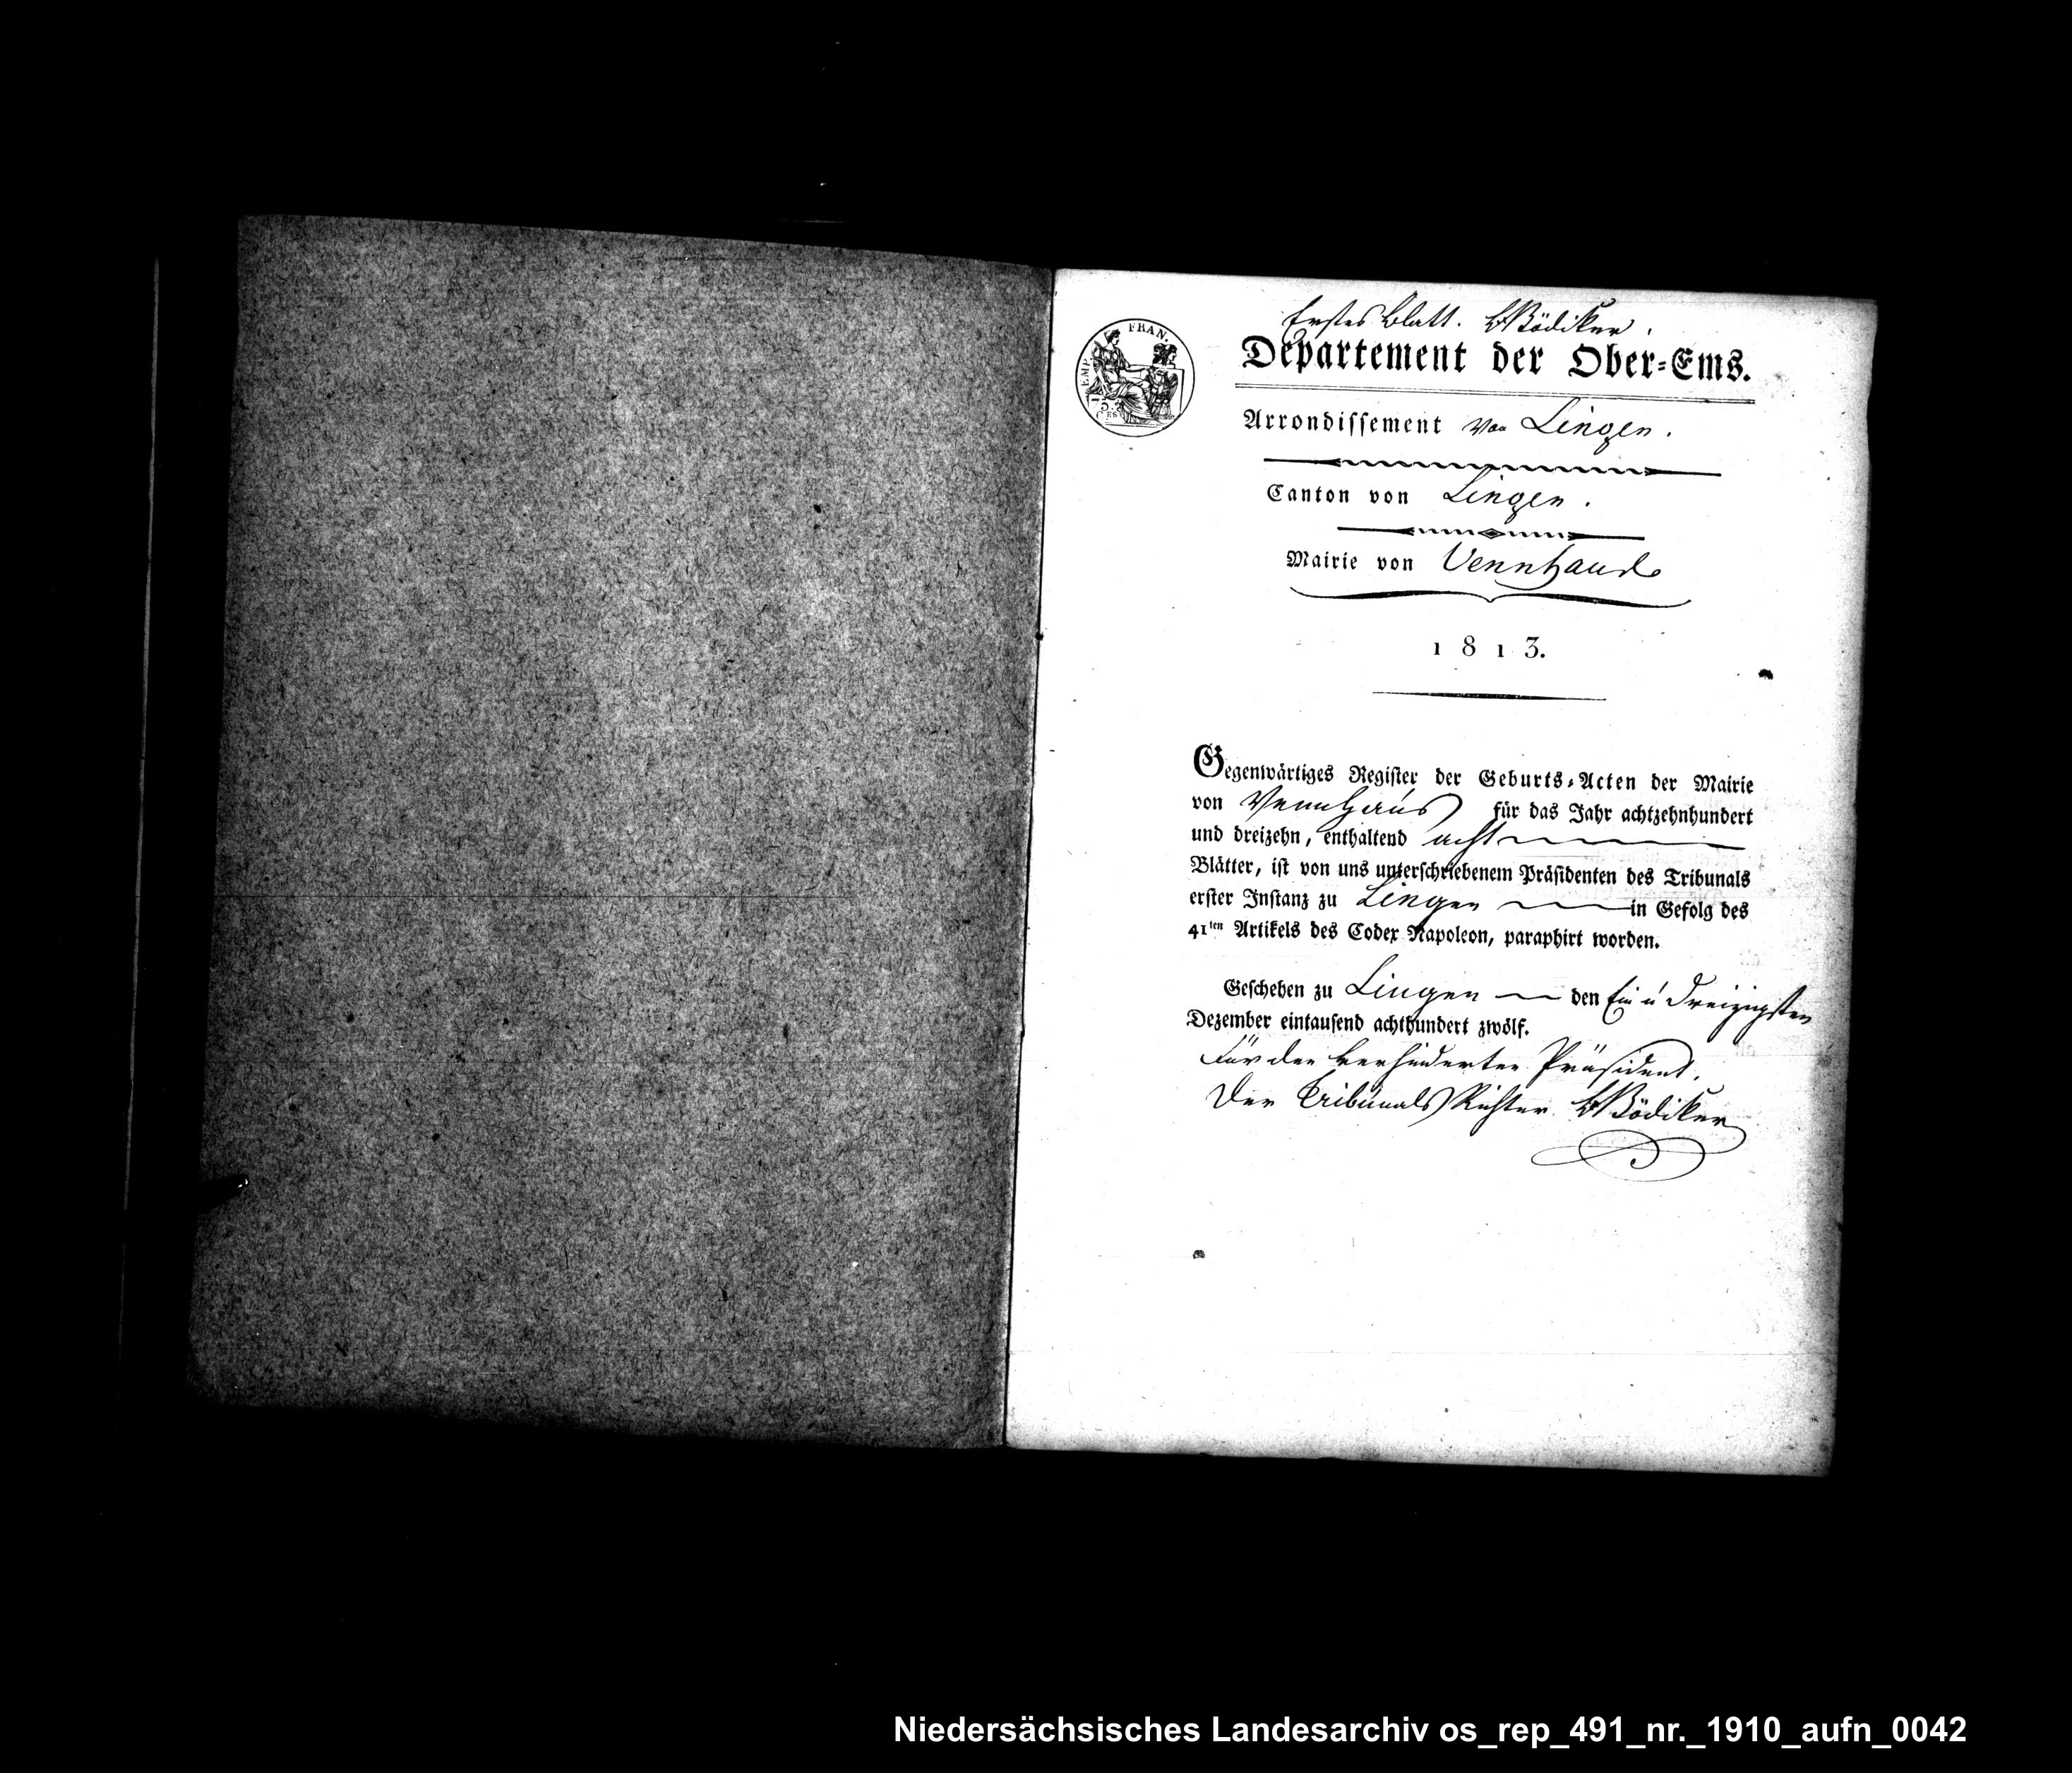 Erstes Blatt. Bödiker.
EMP. FRAN.
75.
CES
Departement der Ober-Ems.
Arrondissement von Lingen.
Canton von Lingen.
Mairie von Vennhaus
1813.
Gegenwärtiges Register der Geburts-Acten der Mairie
von Vennhaus für das Jahr achtzehnhundert
und dreizehn, enthaltend acht
Blätter, ist von uns unterschriebenem Präsidenten des Tribunals
erster Instanz zu Lingen in Gefolg des
41ten Artikels des Codex Napoleon, paraphirt worden.
Geschehen zu Lingen den Ein u Dreizigsten
Dezember eintausend achthundert zwölf.
Für den verhinderten Präsident.
Der Tribunals Richter Bödiker
Niedersächsisches Landesarchiv os_rep_491_nr._1910_aufn_0042